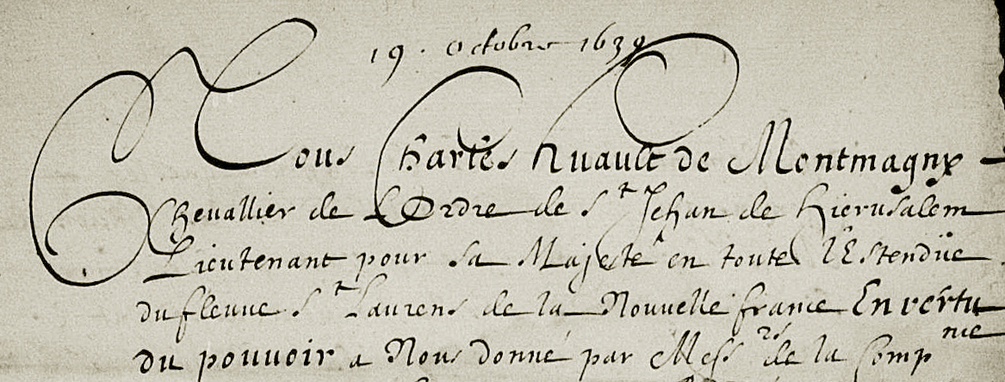 19. octobre 1639
Nous Charles huault de Montmagny
Chevallier de L'Ordre de St Jehan de hierusalem
Lieutenant pour sa Majesté en toute l'Estendüe
du fleuve St Laurens de la Nouvelle france En vertu
du pouvoir a Nous donné par Messrs de la Compnie